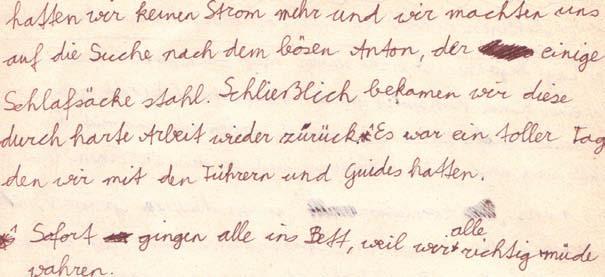 hatten wir keinen Strom mehr und wir machten uns
auf die Suche nach dem bösen Anton, der einige
Schlafsäcke stahl. Schließlich bekamen wir diese
durch harte Arbeit wieder zurück.*¹ Es war ein toller Tag
den wir mit den Führern und Guides hatten.
*¹ Sofort gingen alle ins Bett, weil wir alle richtig müde
wahren.